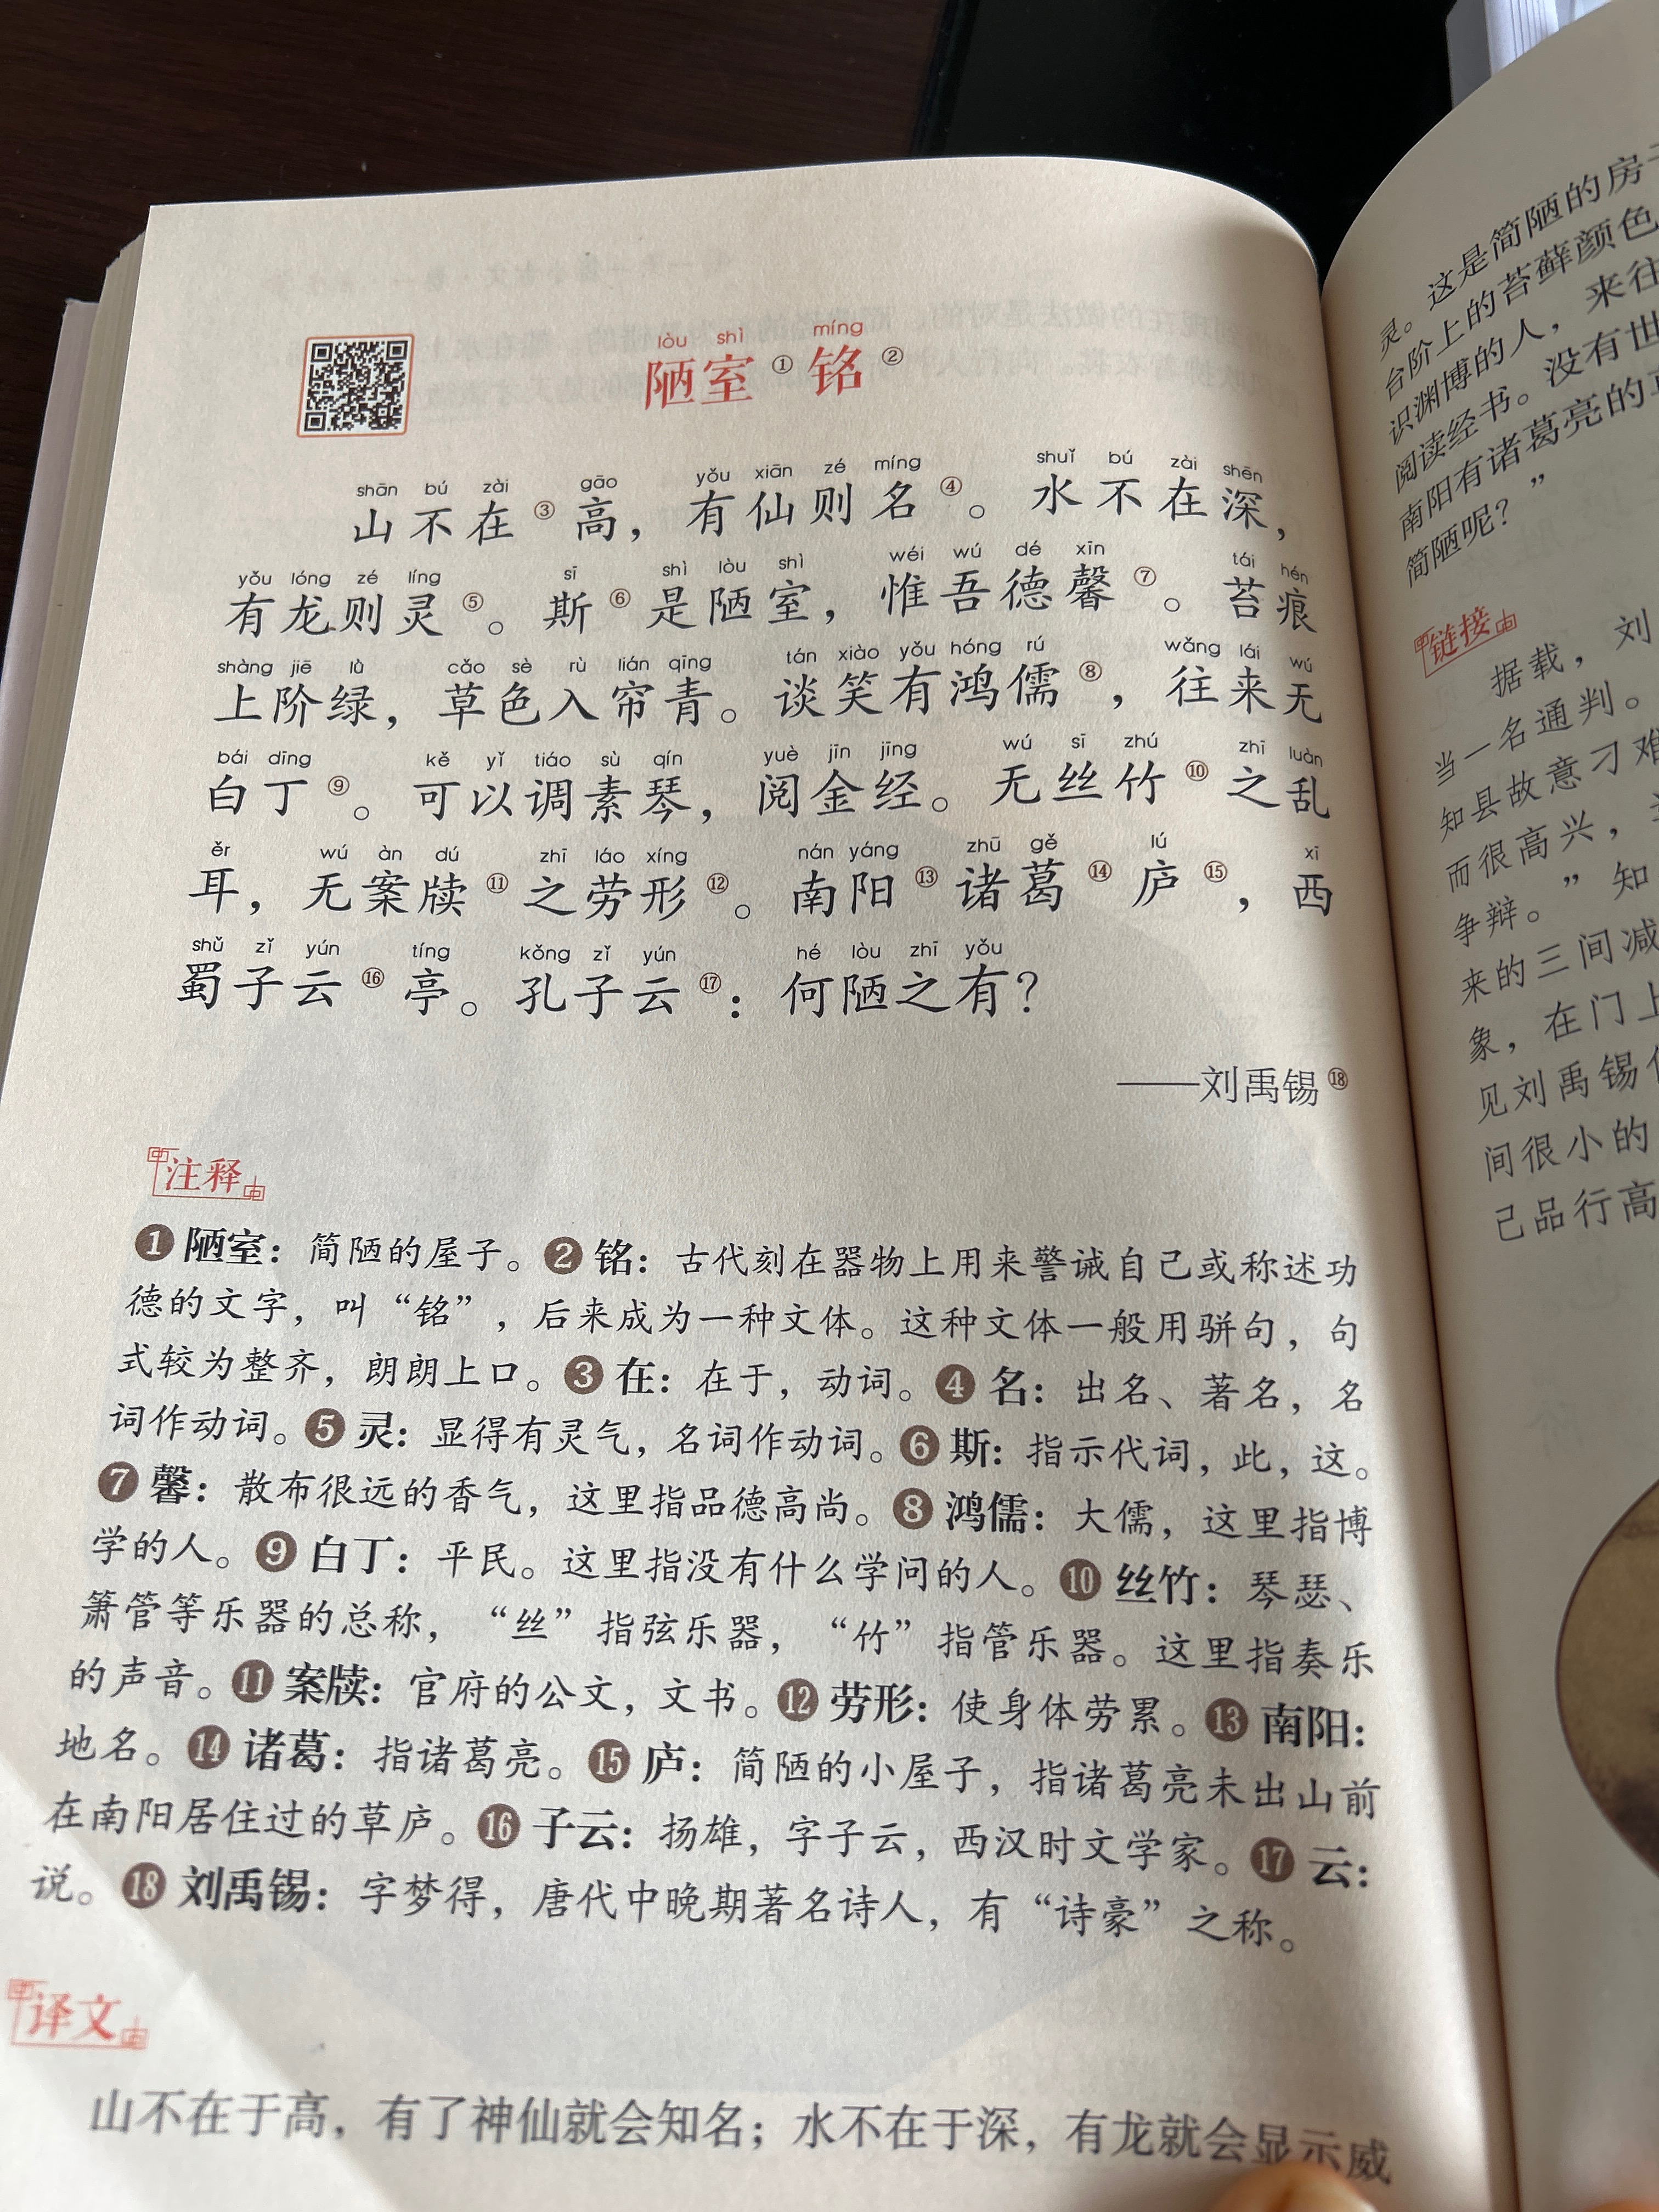 lòu shì míng
陋室①铭②
shān bú zài gāo yǒu xiān zé míng shuǐ bú zài shēn
山不在③高，有仙则名④。水不在深，
yǒu lóng zé líng sī shì lòu shì wéi wú dé xīn tái hén
有龙则灵⑤。斯⑥是陋室，惟吾德馨⑦。苔痕
shàng jiē lǜ cǎo sè rù lián qīng tán xiào yǒu hóng rú wǎng lái wú
上阶绿，草色入帘青。谈笑有鸿儒⑧，往来无
bái dīng kě yǐ tiáo sù qín yuè jīn jīng wú sī zhú zhī luàn
白丁⑨。可以调素琴，阅金经。无丝竹⑩之乱
ěr wú àn dú zhī láo xíng nán yáng zhū gě lú xī
耳，无案牍⑪之劳形⑫。南阳⑬诸葛⑭庐⑮，西
shǔ zǐ yún tíng kǒng zǐ yún hé lòu zhī yǒu
蜀子云⑯亭。孔子云⑰：何陋之有？
——刘禹锡⑱
注释
❶陋室：简陋的屋子。❷铭：古代刻在器物上用来警诫自己或称述功
德的文字，叫“铭”，后来成为一种文体。这种文体一般用骈句，句
式较为整齐，朗朗上口。❸在：在于，动词。❹名：出名、著名，名
词作动词。❺灵：显得有灵气，名词作动词。❻斯：指示代词，此，这。
❼馨：散布很远的香气，这里指品德高尚。❽鸿儒：大儒，这里指博
学的人。❾白丁：平民。这里指没有什么学问的人。❿丝竹：琴瑟、
箫管等乐器的总称，“丝”指弦乐器，“竹”指管乐器。这里指奏乐
的声音。⓫案牍：官府的公文，文书。⓬劳形：使身体劳累。⓭南阳：
地名。⓮诸葛：指诸葛亮。⓯庐：简陋的小屋子，指诸葛亮未出山前
在南阳居住过的草庐。⓰子云：扬雄，字子云，西汉时文学家。⓱云：
说。⓲刘禹锡：字梦得，唐代中晚期著名诗人，有“诗豪”之称。
译文
山不在于高，有了神仙就会知名；水不在于深，有龙就会显示威
灵。这是简陋的房
台阶上的苔藓颜色
识渊博的人，来往
阅读经书。没有世
南阳有诸葛亮的
简陋呢？”
链接
据载，刘
当一名通判。
知县故意刁难
而很高兴，
争辩。”知
来的三间减
象，在门上
见刘禹锡
间很小的
己品行高